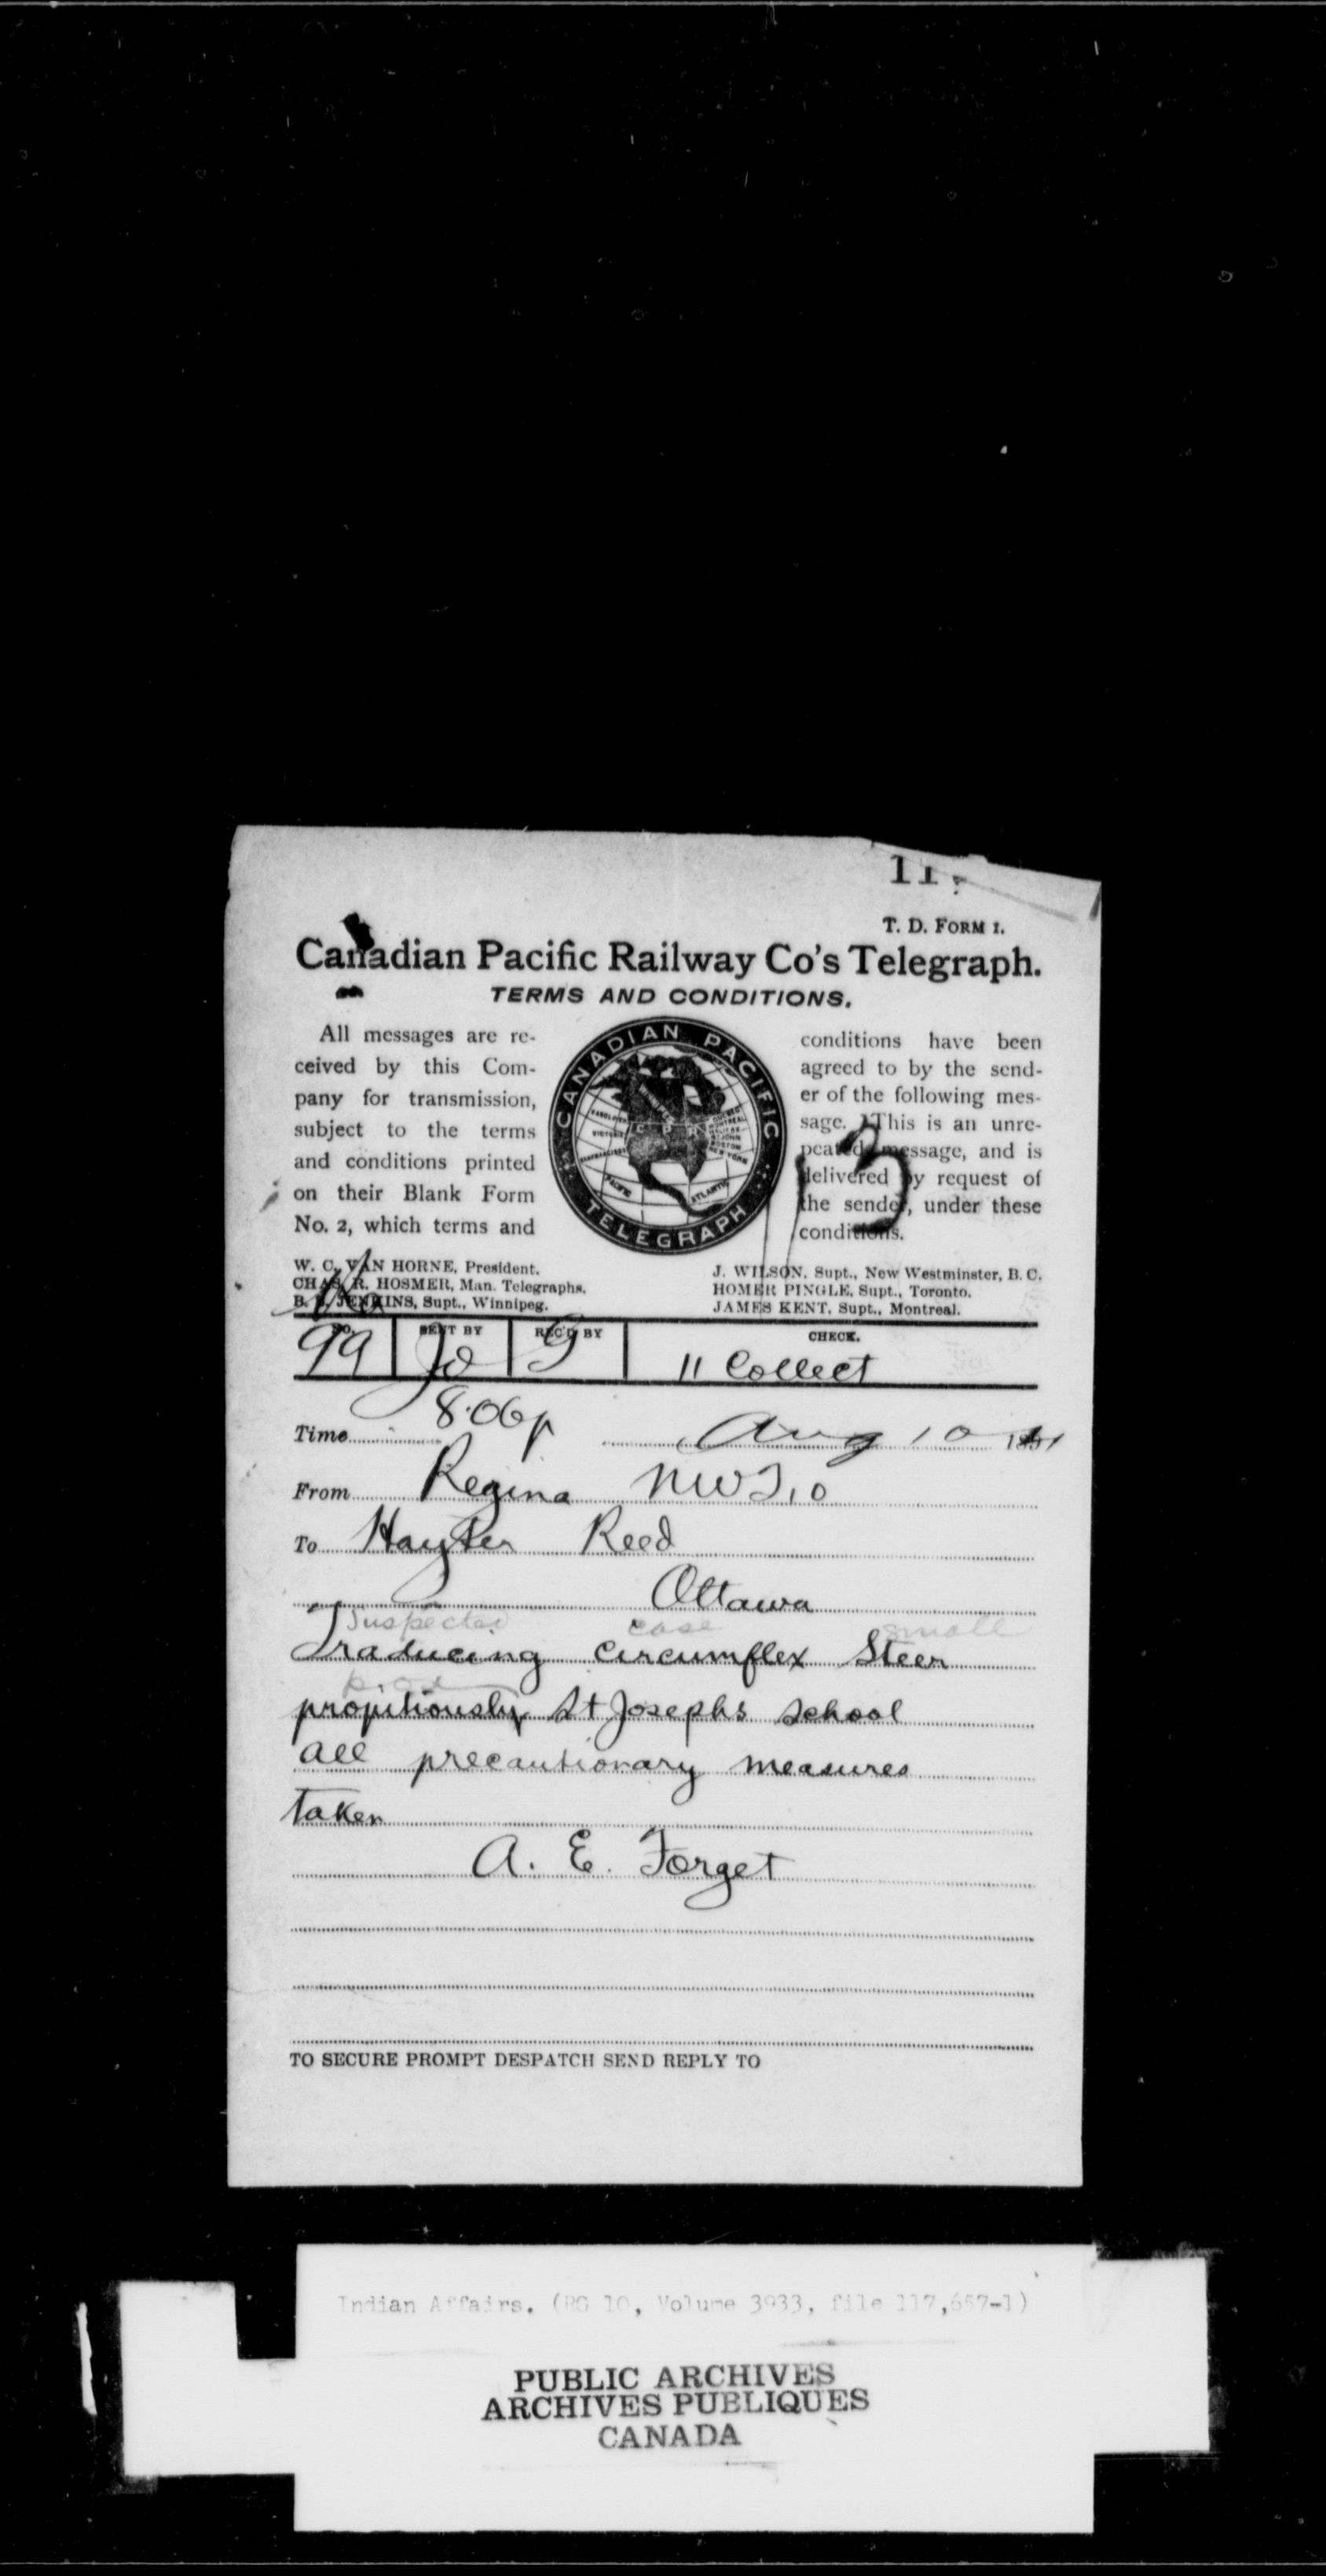 11
T. D. FORM 1.
Canadian Pacific Railway Co's Telegraph.
TERMS AND CONDITIONS.
All messages are re-
ceived by this Com-
pany for transmission,
subject to the terms
and conditions printed
on their Blank Form
No. 2, which terms and
CANADIAN PACIFIC
TELEGRAPH
conditions have been
agreed to by the send-
er of the following mes-
sage. This is an unre-
peated message, and is
delivered by request of
the sender, under these
conditions.
W. C. VAN HORNE, President.
CHAS. R. HOSMER, Man. Telegraphs.
B. S. JENKINS, Supt., Winnipeg.
J. WILSON, Supt., New Westminster, B. C.
HOMER PINGLE, Supt., Toronto.
JAMES KENT, Supt., Montreal.
NO. SENT BY REC'D BY CHECK.
99 Jo G 11 Collect
Time 8.06p Aug 10 189
From Regina NWT 10
To Hayter Reed
Ottawa
Suspected case small
Traducing circumflex Steer
pox
propitiously St Josephs School
all precautionary measures
taken
A. E. Forget
TO SECURE PROMPT DESPATCH SEND REPLY TO
Indian Affairs. (RG 10, Volume 3933, file 117,657-1)
PUBLIC ARCHIVES
ARCHIVES PUBLIQUES
CANADA